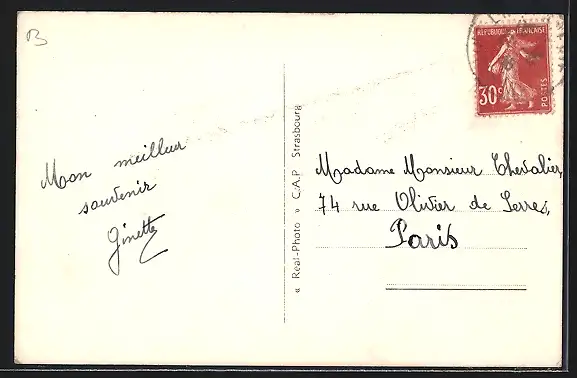 B
RÉPUBLIQUE FRANÇAISE
30c
POSTES
Mon meilleur
souvenir
Ginette
« Real-Photo » C.A.P. Strasbourg
Madame Monsieur Chevalier,
74 rue Olivier de Serres,
Paris